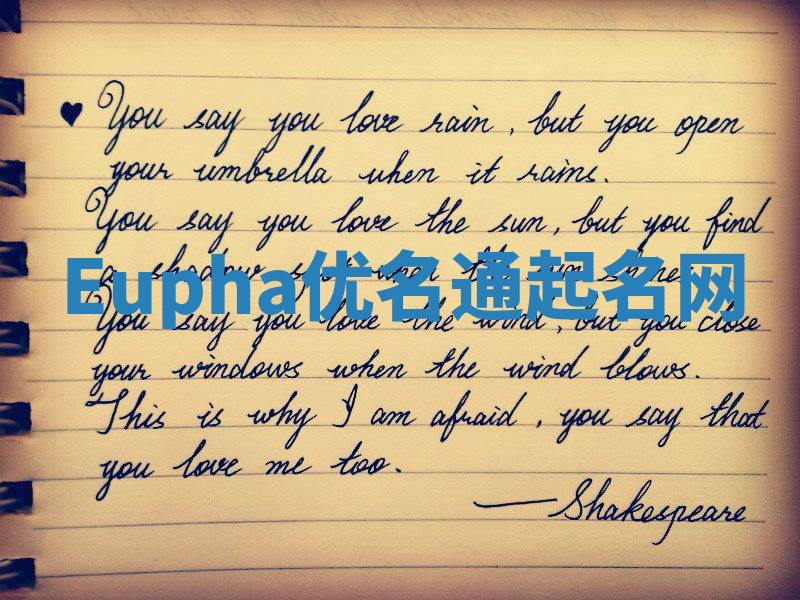 ♥ You say you love rain, but you open
your umbrella when it rains.
You say you love the sun, but you find
a shadow spot when the sun shines.
Eupha优名通起名网
You say you love the wind, but you close
your windows when the wind blows.
This is why I am afraid, you say that
you love me too.
—Shakespeare